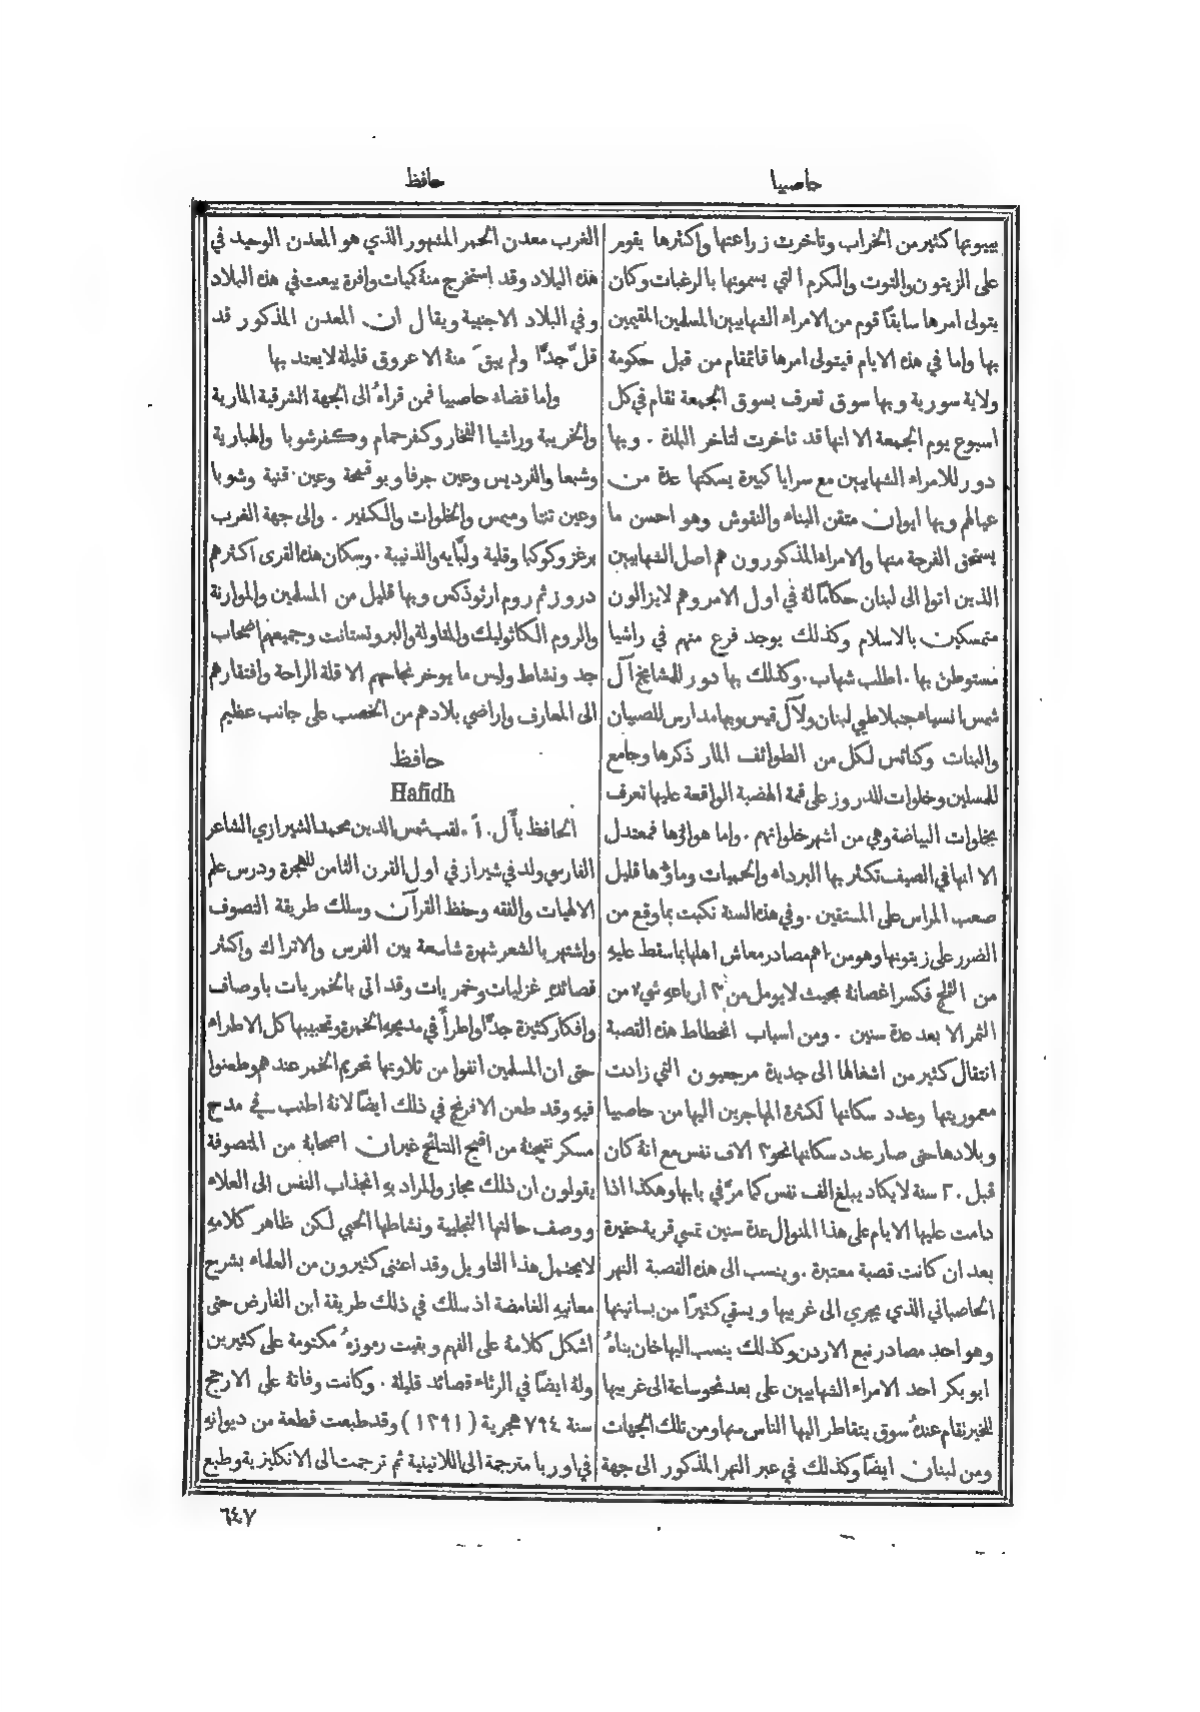 حاصبيا
حافظ
ببيوتها كثير من الخراب وتاخرت زراعتها واكثرها يقوم
على الزيتون والتوت والكرم التي يسمونها بالرغبات وكان
يتولى امرها سابقًا قوم من الامراء الشهابيين المسلمين المقيمين
بها واما في هذه الايام فيتولى امرها قائمقام من قبل حكومة
ولاية سورية وبها سوق تعرف بسوق الجمعة تقام في كل
اسبوع يوم الجمعة الا انها قد تاخرت لتاخر البلدة . وبها
دور للامراء الشهابيين مع سرايا كبيرة يسكنها عدة من
عيالهم وبها ايوان متقن البناء والنقوش وهو احسن ما
يستحق الفرجة منها والامراء المذكورون هم اصل الشهابيين
الذين اتوا الى لبنان حكامًا له في اول الامر وهم لا يزالون
متمسكين بالاسلام وكذلك يوجد فرع منهم في راشيا
مستوطن بها . اطلب شهاب . وكذلك بها دور للمشايخ آل
شمس انسباء جنبلاطيي لبنان ولآل قيس وبها مدارس للصبيان
والبنات وكنائس لكل من الطوائف المار ذكرها وجامع
للمسلمين وخلوات للدروز على قمة الهضبة الواقعة عليها تعرف
بخلوات البياضة وهي من اشهر خلواتهم . واما هواؤها فمعتدل
الا انها في الصيف تكثر بها البرداء والحميات وماؤها قليل
صعب المراس على المستقين . وفي هذه السنة نكبت بما وقع من
الضرر على زيتونها وهو من اهم مصادر معاش اهلها بما سقط عليهِ
من الثلج فكسر اغصانهُ بحيث لا يومل من ٣ ارباعهِ شيء من
الثمر الا بعد عدة سنين . ومن اسباب انحطاط هذه القصبة
انتقال كثير من اشغالها الى جديدة مرجعيون التي زادت
معموريتها وعدد سكانها لكثرة المهاجرين اليها من حاصبيا
وبلادها حتى صار عدد سكانها نحو ٣ الاف نفس مع انهُ كان
قبل ٢٠ سنة لا يكاد يبلغ الف نفس كما مرَّ في بابها وهكذا اذا
دامت عليها الايام على هذا المنوال عدة سنين تمسي قرية حقيرة
بعد ان كانت قصبة معتبرة . وينسب الى هذه القصبة النهر
الحاصباني الذي يجري الى غربيها ويسقي كثيرًا من بساتينها
وهو احد مصادر نبع الاردن وكذلك ينسب اليها خان بناهُ
ابو بكر احد الامراء الشهابيين على بعد نحو ساعة الى غربيها
للخير تقام عندهُ سوق يتقاطر اليها الناس منها ومن تلك الجهات
ومن لبنان ايضًا وكذلك في عبر النهر المذكور الى جهة
الغرب معدن الحمر المشهور الذي هو المعدن الوحيد في
هذه البلاد وقد استخرج منهُ كميات وافرة بيعت في هذه البلاد
وفي البلاد الاجنبية ويقال ان المعدن المذكور قد
قلَّ جدًّا ولم يبقَ منهُ الا عروق قليلة لا يعتد بها
واما قضاء حاصبيا فمن قراهُ الى الجهة الشرقية المارية
والخريبة وراشيا الفخار وكفرحمام وكفرشوبا والهبارية
وشبعا والفرديس وعين جرفا وبو قمحة وعين قنية وشويا
وعين تنتا وميمس والخلوات والكفير . والى جهة الغرب
برغز وكوكبا وقلية ولبَّايه والذنيبة . وسكان هذه القرى اكثرهم
دروز ثم روم ارثوذكس وبها قليل من المسلمين والموارنة
والروم الكاثوليك والمتاولة والبروتستانت وجميعهم اصحاب
جد ونشاط وليس ما يوخر نجاحهم الا قلة الراحة وافتقارهم
الى المعارف واراضي بلادهم من الخصب على جانب عظيم
حافظ
Hafidh
الحافظ بأَل . ١ً . لقب شمس الدين محمد الشيرازي الشاعر
الفارسي ولد في شيراز في اول القرن الثامن للهجرة ودرس علم
الالهيات والفقه وحفظ القرآن وسلك طريقة التصوف
واشتهر بالشعر شهرة شاسعة بين الفرس والاتراك واكثر
قصائدهِ غزليات وخمريات وقد اتى بالخمريات باوصاف
وافكار كثيرة جدًّا واطرأَ في مديحهِ الخمرة وتحبيبها كل الاطراء
حتى ان المسلمين انفوا من تلاوتها لتحريم الخمر عندهم وطعنوا
فيهِ وقد طعن الافرنج في ذلك ايضًا لانهُ اطنب في مدح
مسكر نتيجتهُ من اقبح النتائج غير ان اصحابهُ من المتصوفة
يقولون ان ذلك مجاز والمراد بهِ انجذاب النفس الى العلاء
ووصف حالتها التجلبية ونشاطها الحبي لكن ظاهر كلامهِ
لا يحتمل هذا التاويل وقد اعتنى كثيرون من العلماء بشرح
معانيهِ الغامضة اذ سلك في ذلك طريقة ابن الفارض حتى
اشكل كلامهُ على الفهم وبقيت رموزهُ مكتومة على كثيرين
ولهُ ايضًا في الرثاء قصائد قليلة . وكانت وفاتهُ على الارجح
سنة ٧٩٤ هجرية ( ١٣٩١ ) وقد طبعت قطعة من ديوانهِ
في اوربا مترجمة الى اللاتينية ثم ترجمت الى الانكليزية وطبع
٦٤٧